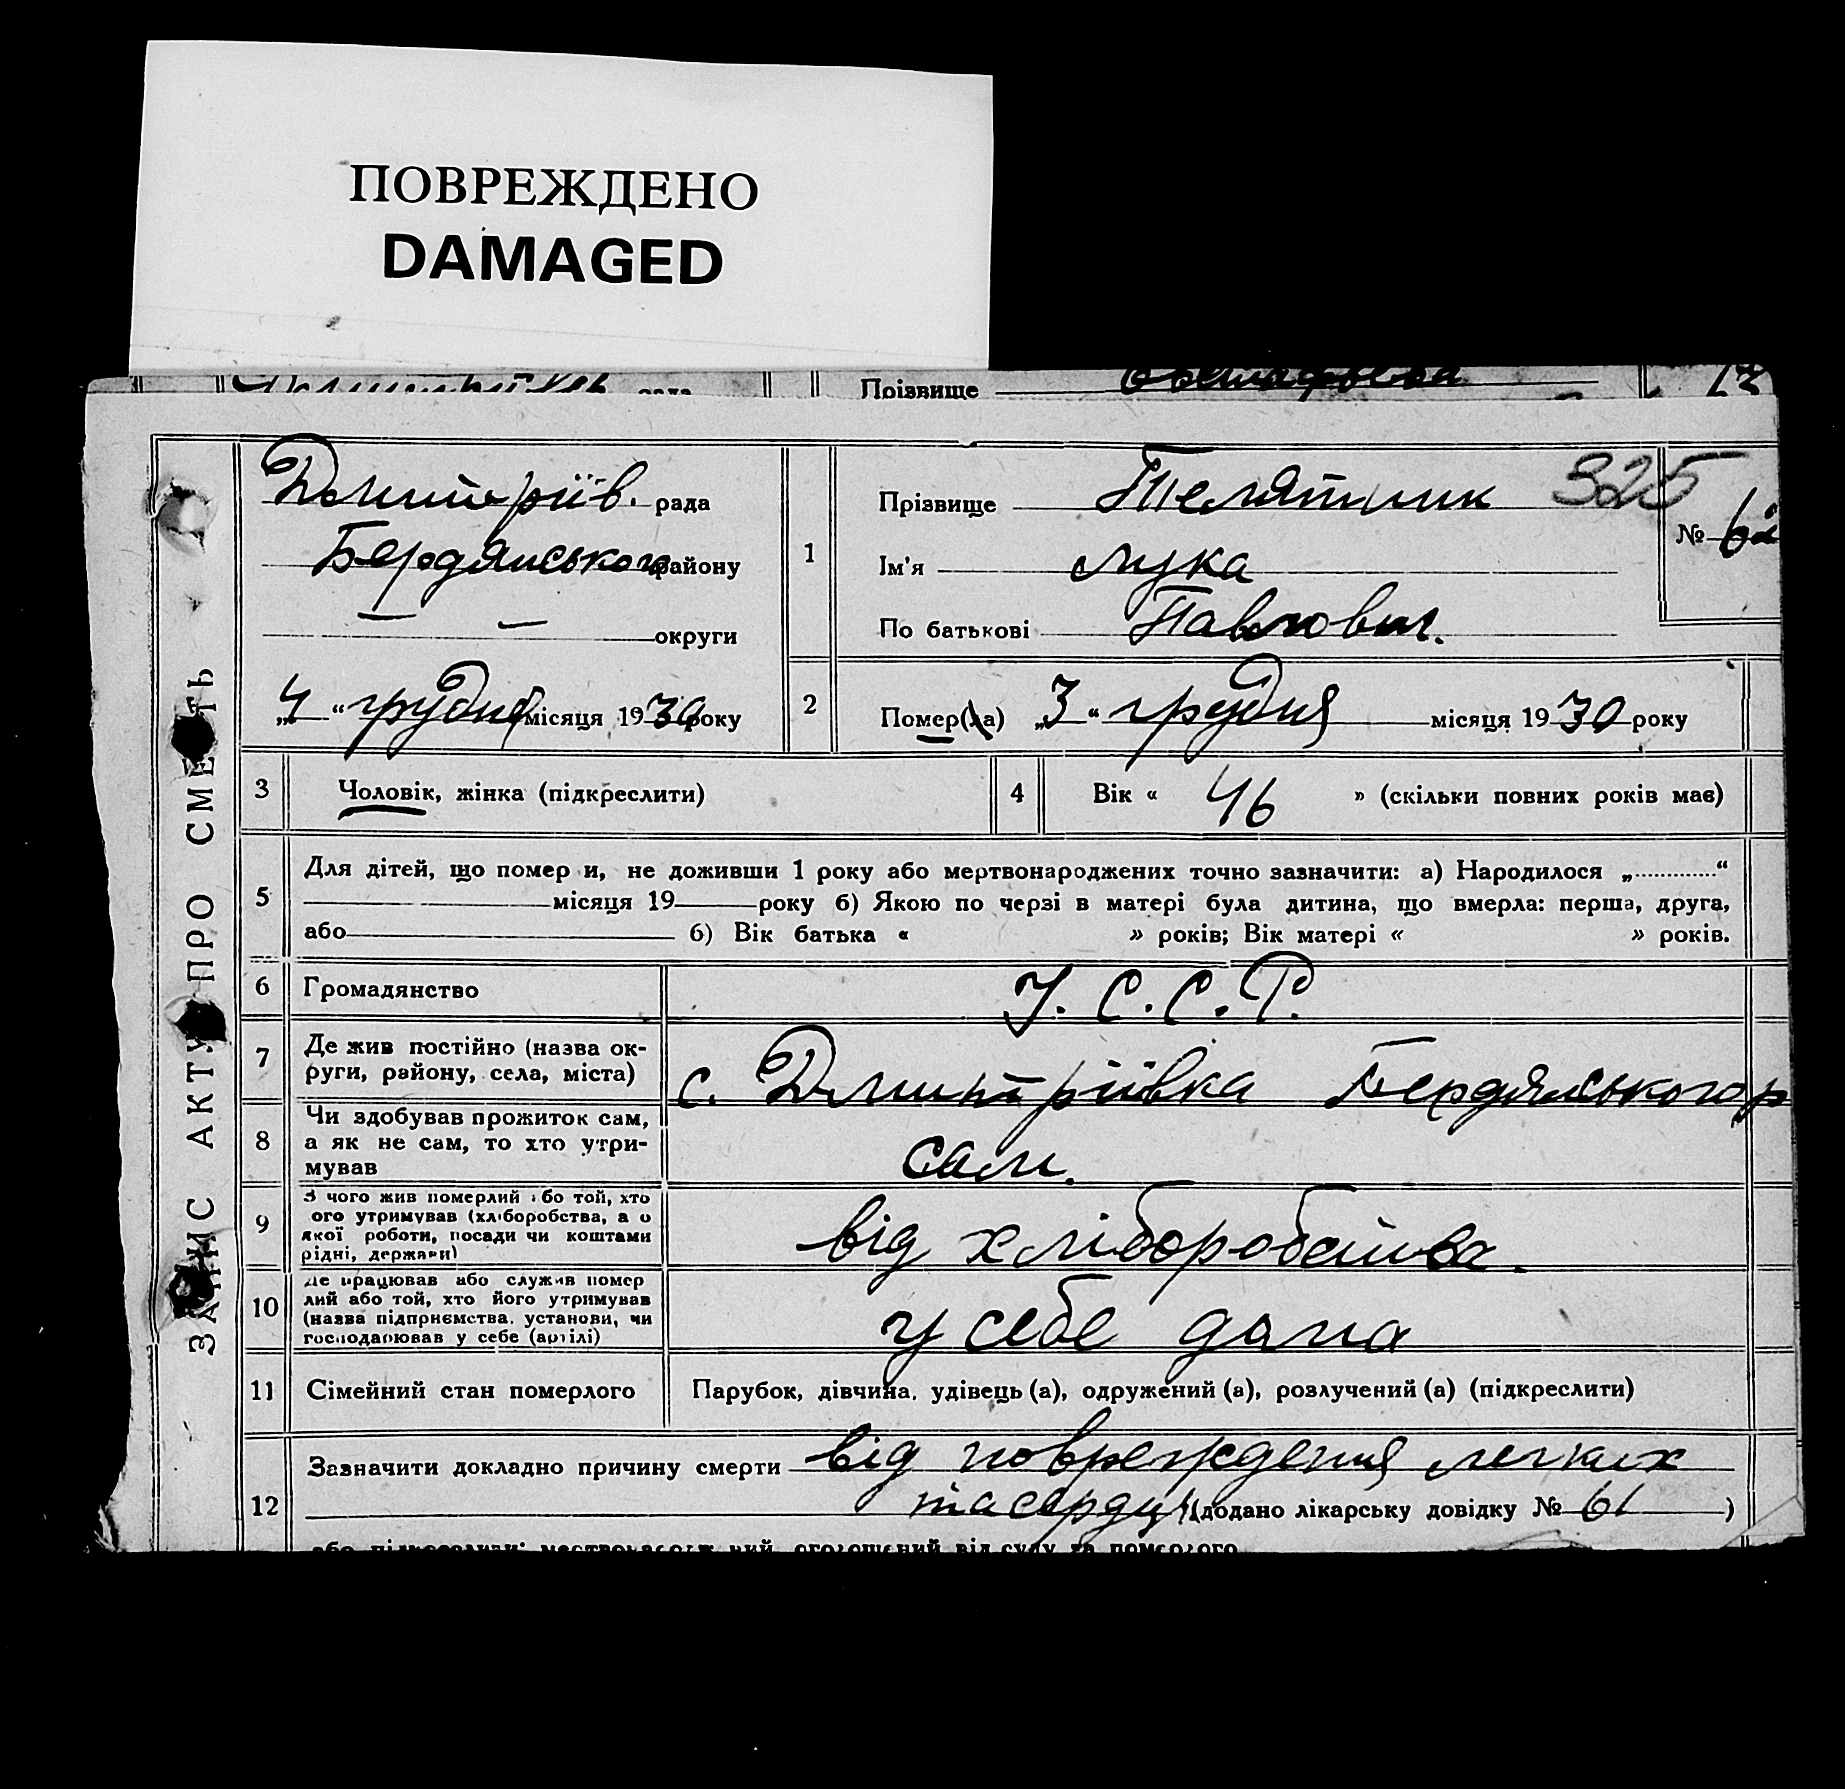 ПОВРЕЖДЕНО
DAMAGED
Прізвище
ЗАПИС АКТУ ПРО СМЕРТЬ
Дмитріїв. рада
Бердянського району
округи
„4“ грудня місяця 1930 року
1
Прізвище Телятник 325
Ім'я Лука
По батькові Павлович.
№
2
Помер(ла) „3“ грудня місяця 1930 року
3 Чоловік, жінка (підкреслити)
4 Вік « 46 » (скільки повних років має)
5
Для дітей, що померли, не доживши 1 року або мертвонароджених точно зазначити: а) Народилося „ “
місяця 19 року б) Якою по черзі в матері була дитина, що вмерла: перша, друга,
або б) Вік батька « » років; Вік матері « » років.
6 Громадянство У.С.С.Р.
7 Де жив постійно (назва ок-
руги, району, села, міста) с. Дмитріївка Бердянського р
8 Чи здобував прожиток сам,
а як не сам, то хто утри-
мував сам.
9 З чого жив померлий або той, хто
ого утримував (хліборобства, а о
якої роботи, посади чи коштами
рідні, держави) від хліборобства.
10 Де працював або служив помер
лий або той, хто його утримував
(назва підприємства, установи, чи
господарював у себе (артілі) у себе дома
11 Сімейний стан померлого Парубок, дівчина, удівець (а), одружений (а), розлучений (а) (підкреслити)
12 Зазначити докладно причину смерти від повреждения легких
та серця (додано лікарську довідку № 61 )